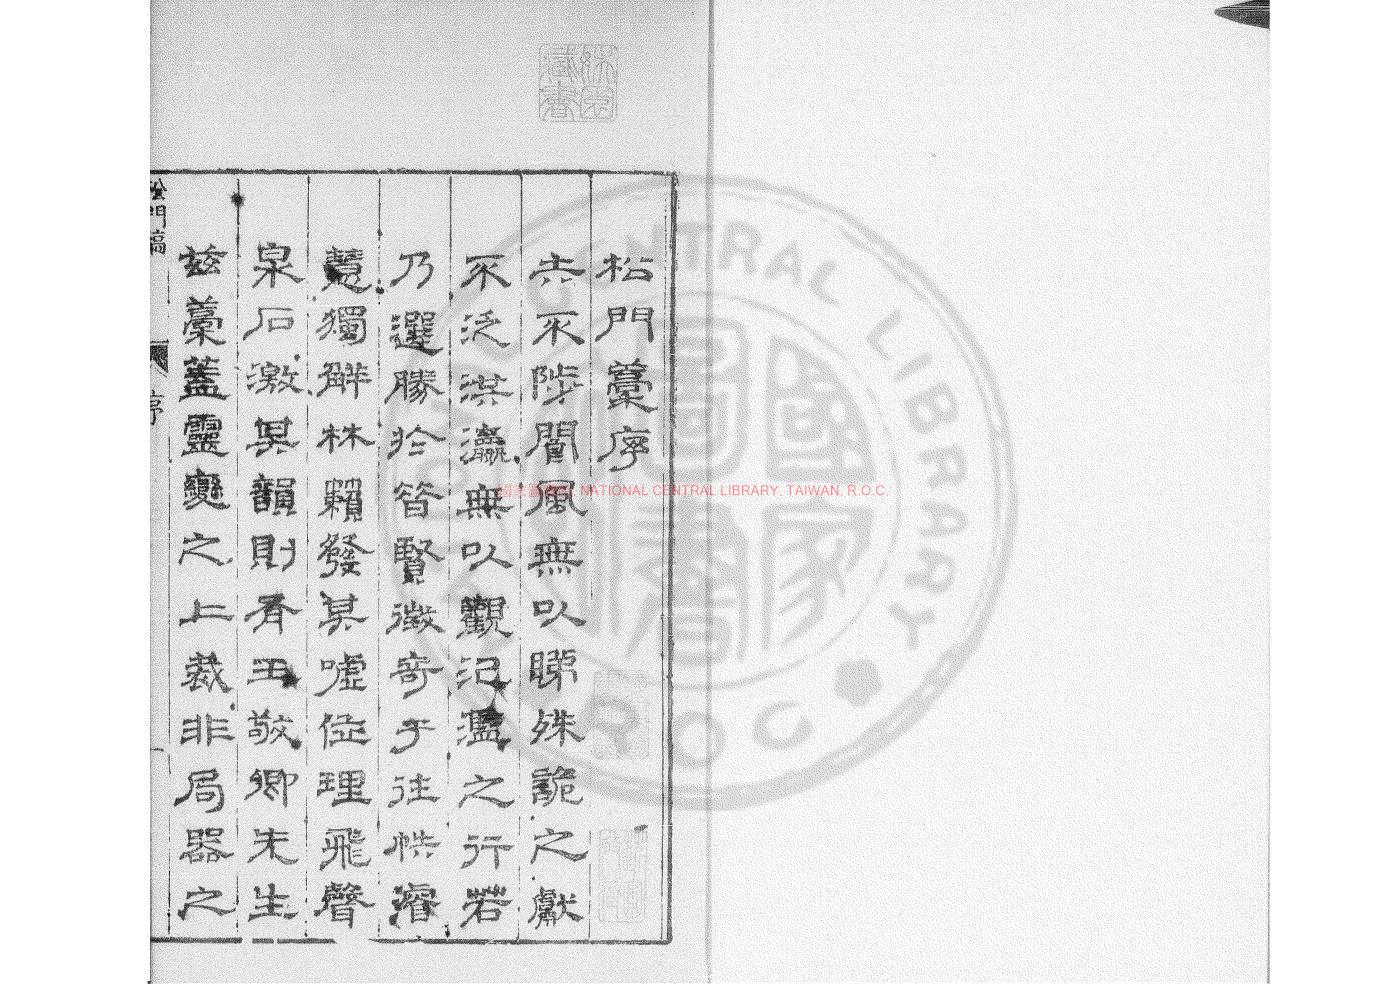 松門藳序
夫不陟閬風無以睇殊詭之獻
不泛洪瀛無以觀氾濫之行若
乃選勝於昝賢徵奇于往帙濬
慧獨解林籟發其嘘位理飛聲
泉石激其韻則有王敬卿先生
茲藳蓋靈變之上裁非局器之
松門稿
序
一
國家圖書館 NATIONAL CENTRAL LIBRARY, TAIWAN, R.O.C.
NATIONAL CENTRAL LIBRARY
R.O.C.
國家圖書